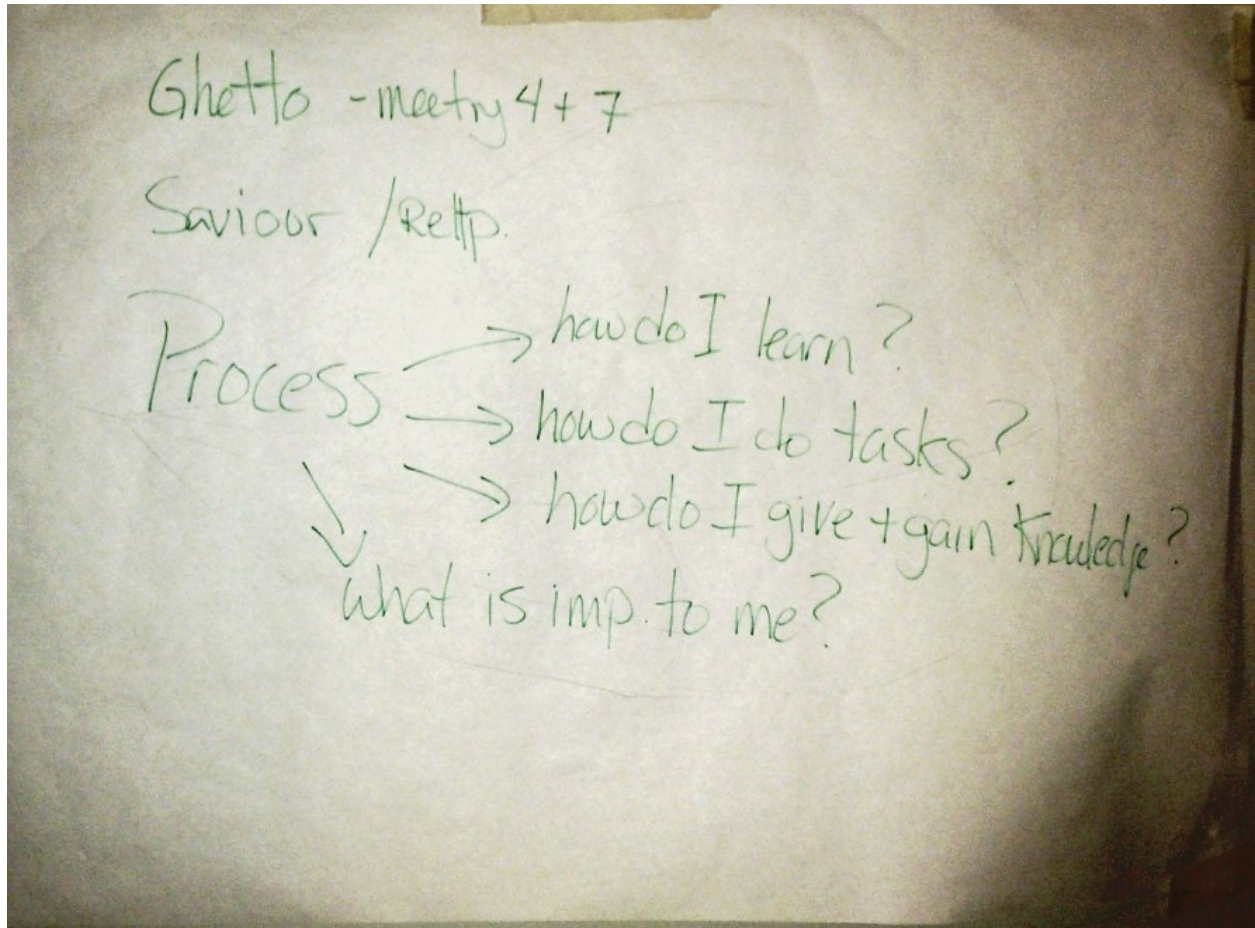 Ghetto - meeting 4 + 7
Saviour /
Process
→ how do I learn?
→ how do I do tasks?
→ how do I give + gain knowledge?
→ what is imp. to me?